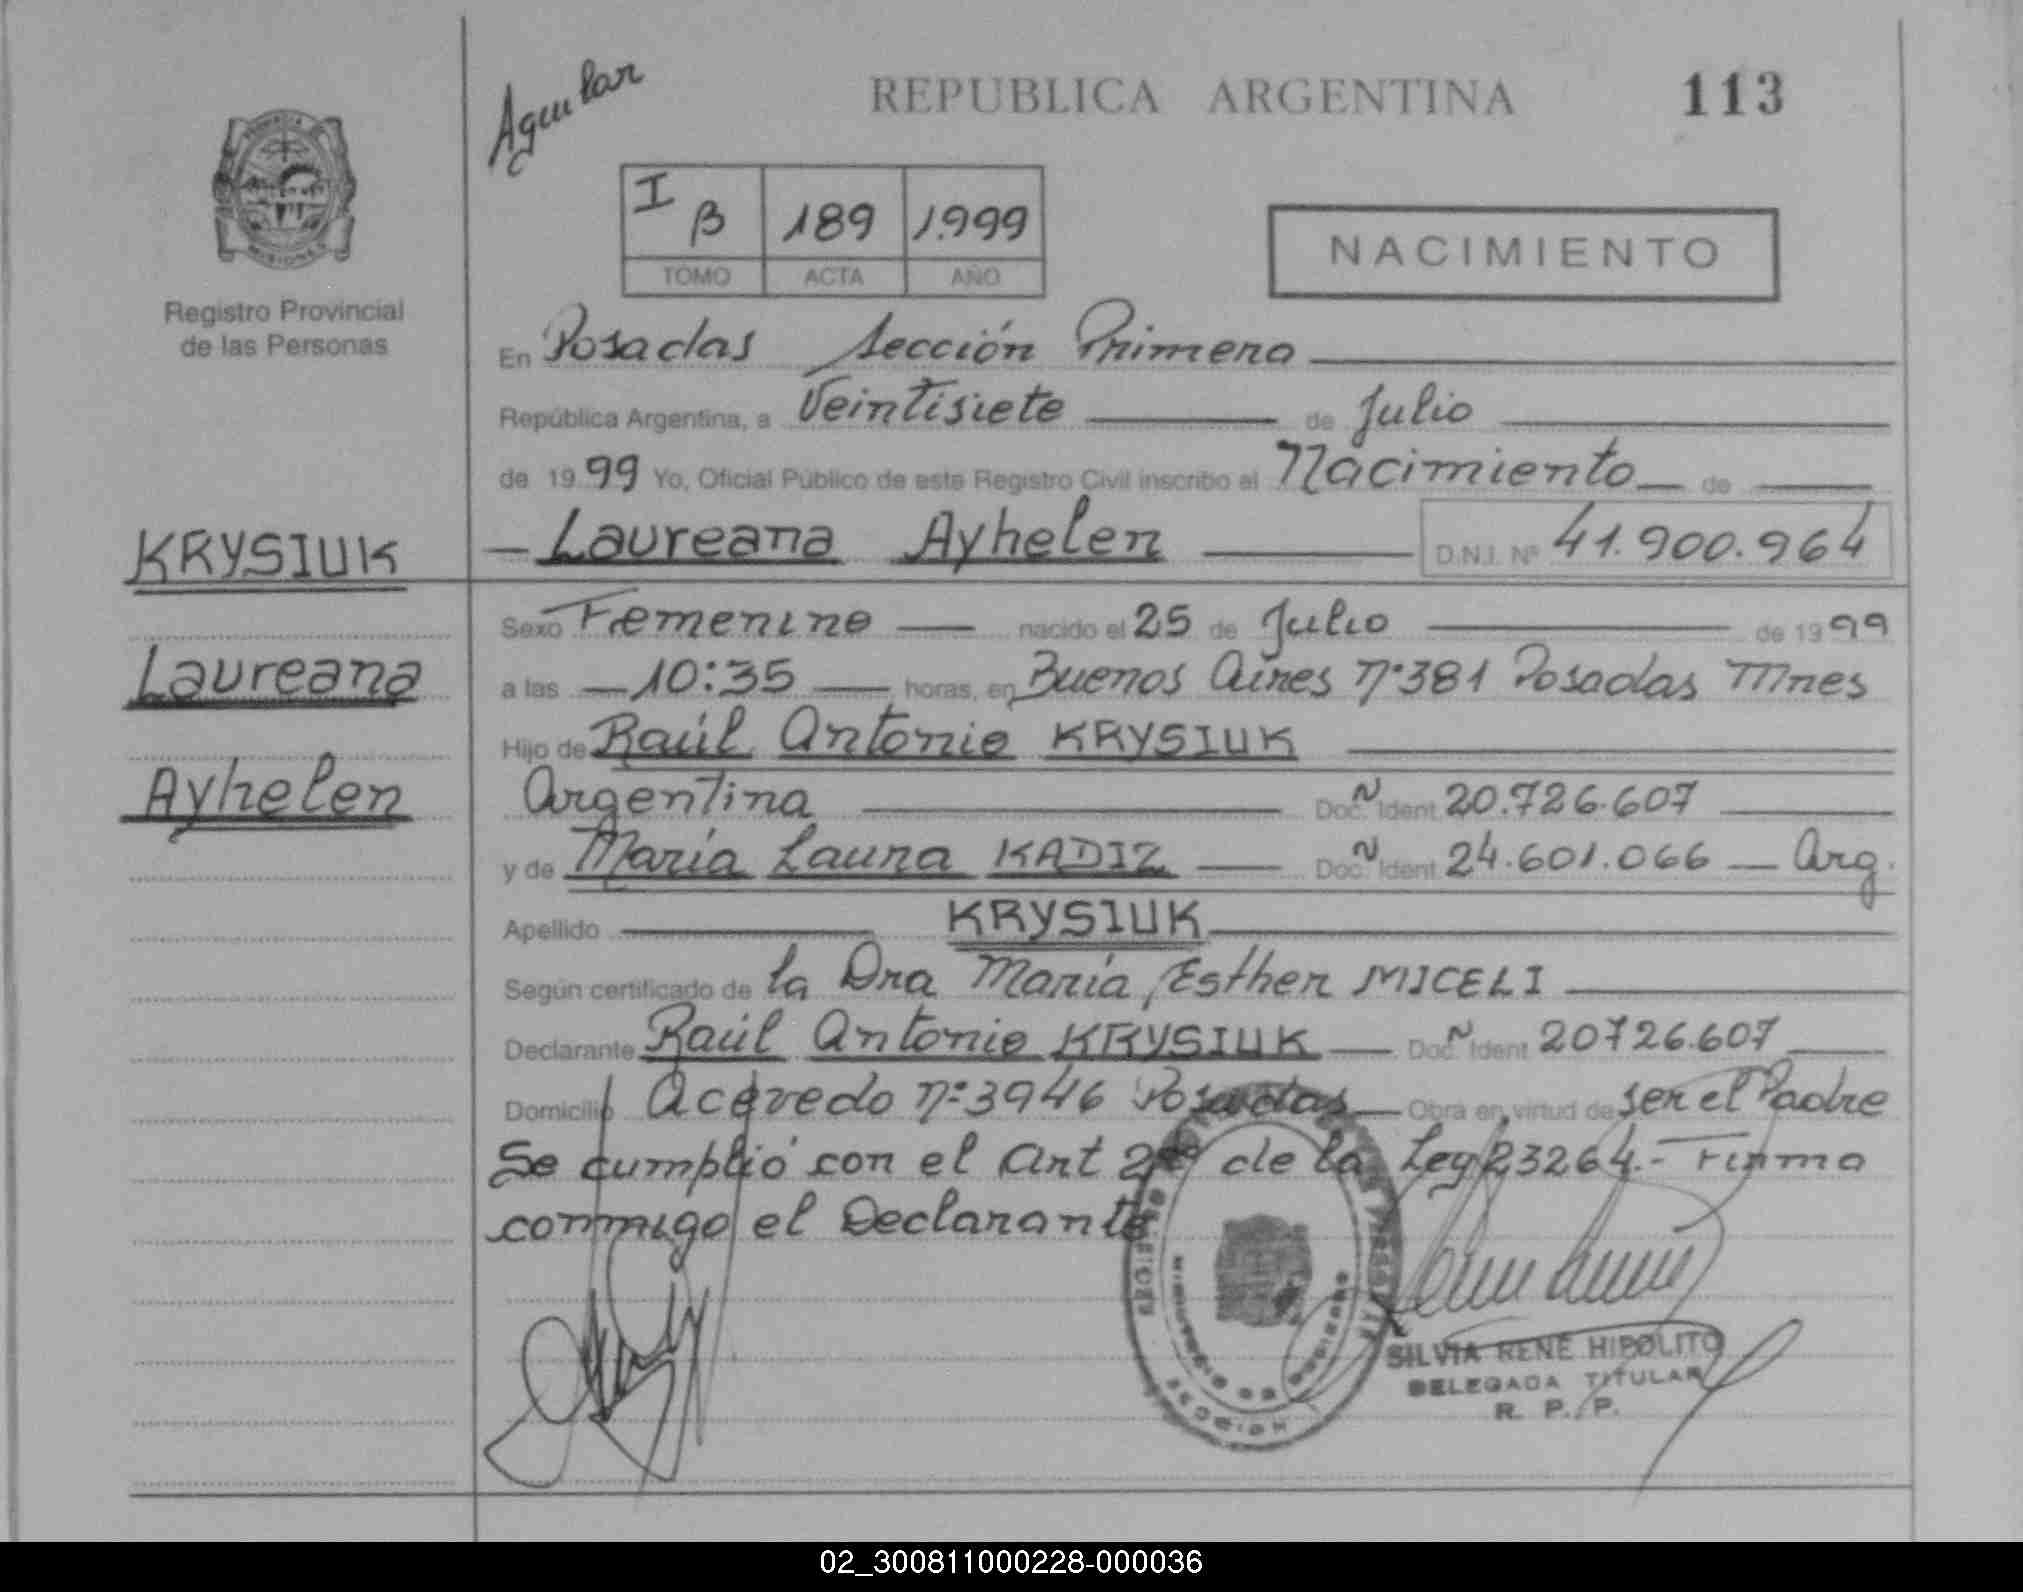 Aguilar
REPUBLICA ARGENTINA 113
PROVINCIA DE MISIONES
Registro Provincial
de las Personas
I B 189 1.999
TOMO ACTA AÑO
NACIMIENTO
En Posadas Sección Primera
República Argentina, a Veintisiete de Julio
de 1999 Yo, Oficial Público de este Registro Civil inscribo el Nacimiento de
Laureana Ayhelen D.N.I. Nº 41.900.964
KRYSIUK
Laureana
Ayhelen
Sexo Femenino nacido el 25 de Julio de 1999
a las 10:35 horas, en Buenos Aires nº 381 Posadas Mnes
Hijo de Raúl Antonio KRYSIUK
Argentina Doc. Ident. 20.726.607
y de María Laura KADIZ Doc. Ident. 24.601.066 Arg.
Apellido KRYSIUK
Según certificado de la Dra María Esther MICELI
Declarante Raúl Antonio KRYSIUK Doc. Ident. 20726.607
Domicilio Acevedo nº 3946 Posadas Obra en virtud de ser el Padre
Se cumplió con el Art 2do de la Ley 23264.- Firma
conmigo el Declarante
SILVIA RENE HIPOLITO
DELEGADA TITULAR
R. P. P.
02_300811000228-000036